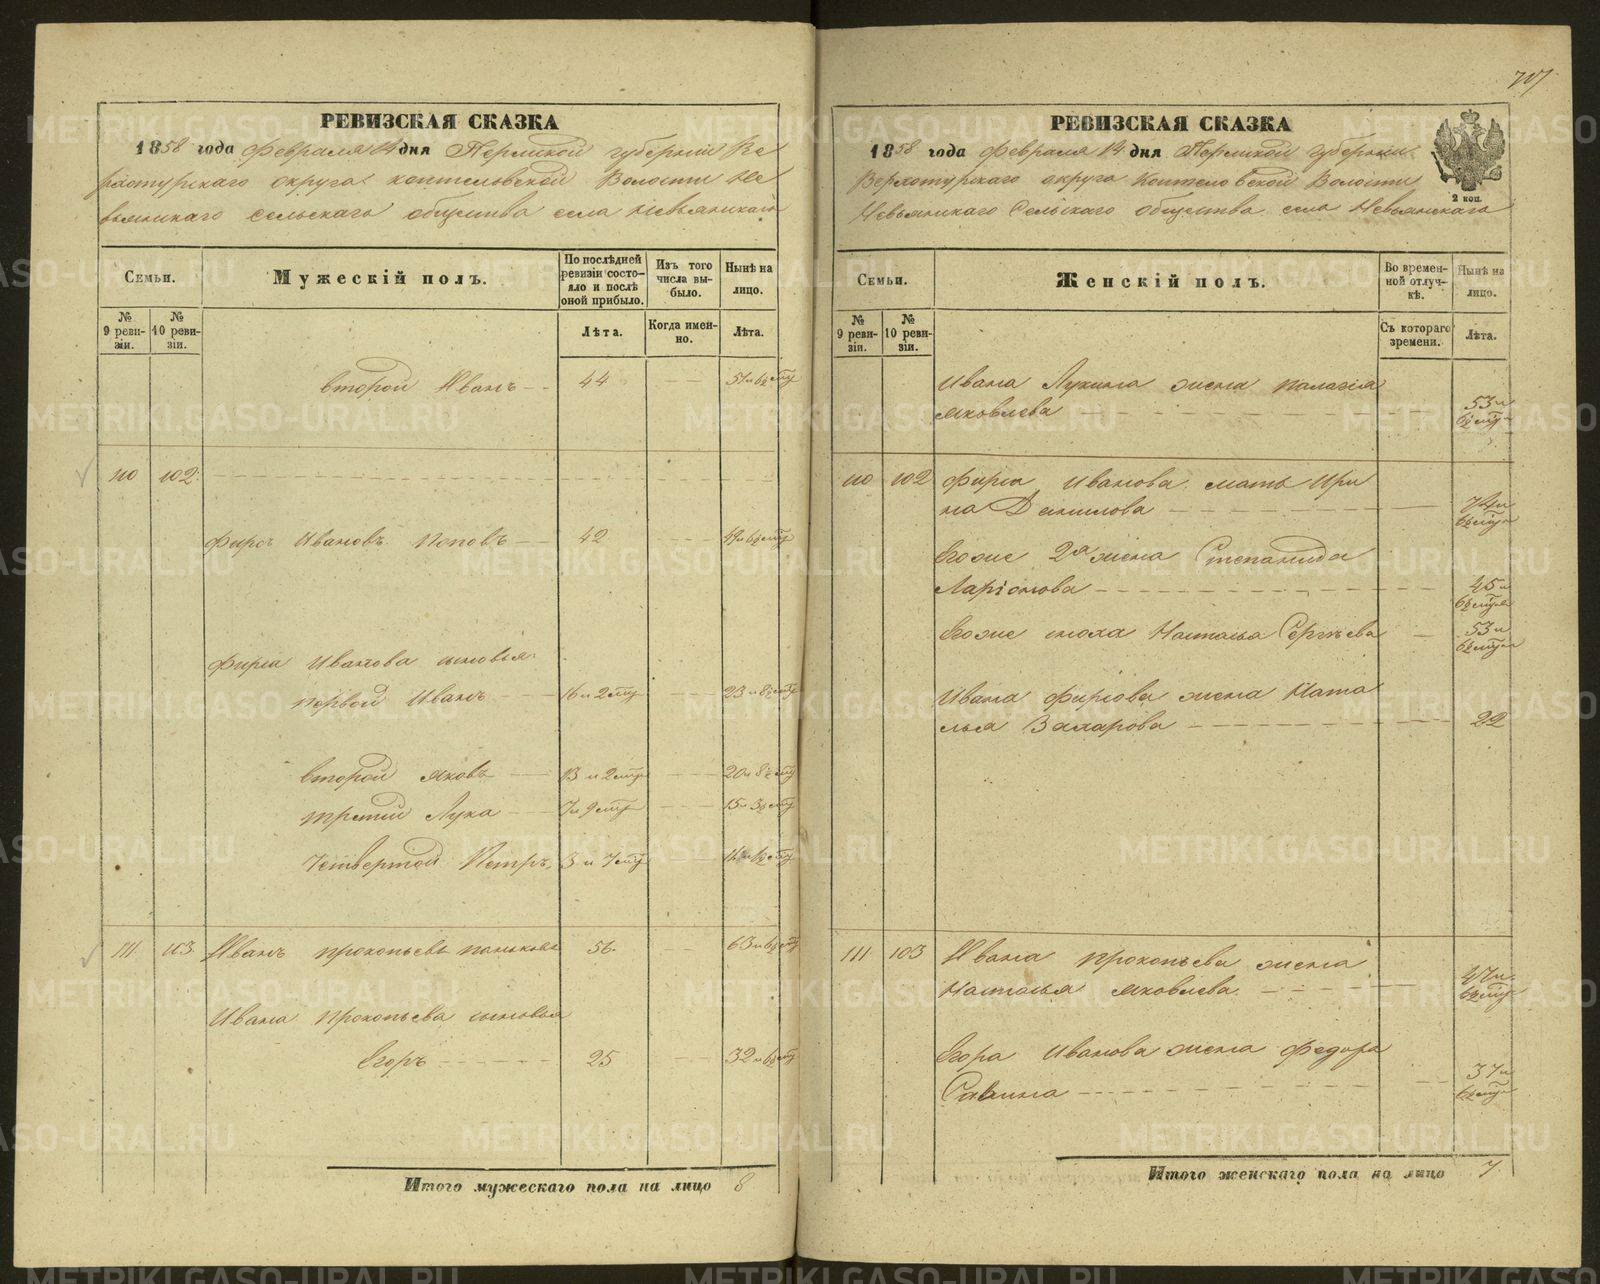 РЕВИЗСКАЯ СКАЗКА
1858 года Февраля 14 дня Пермской губернии Ве
рхотурскаго округа коптеловской Волости Не
вьянскаго сельскаго общества села Невьянскаго
Семьи.
Мужескій полъ.
По послѣдней ревизіи состояло и послѣ оной прибыло.
Изъ того числа выбыло.
Нынѣ на лицо.
№ 9 ревизіи.
№ 10 ревизіи.
Лѣта.
Когда именно.
Лѣта.
второй Иванъ 44 51 и 6½ мц
110 102
Фирсъ Ивановъ Поповъ 42 49 и 6½ мц
Фирса Иванова сыновья
первой Иванъ 16 и 2 мц 23 и 8½ мц
второй яковъ 13 и 2 мц 20 и 8½ мц
третий Лука 7 и 9 мц 15 и 3½ мц
четвертой Петръ 3 и 7 мц
111 103 Иванъ прокопьевъ паньковъ 56 63 и 6½ мц
Ивана Прокопьева сыновья
Егоръ 25 32 и 6½ мц
Итого мужескаго пола на лицо 8
717
РЕВИЗСКАЯ СКАЗКА
1858 года февраля 14 дня Пермской Губернии
Верхотурскаго округа Коптеловской Волости
Невьянскаго Сельскаго общества села Невьянскаго
2 коп.
Семьи.
Женскій полъ.
Во временной отлучкѣ.
Нынѣ на лицо.
№ 9 ревизіи.
№ 10 ревизіи.
Съ котораго времени.
Лѣта.
Ивана Лукина жена палагія
яковлева 53 и 6½ мц
110 102 Фирса Иванова мать Ири
на Данилова 74 и 6½ мц
Егоже 2я жена Степанида
Ларіонова 45 и 6½ мц
Егоже сноха Наталья Сергѣева 53 и 6½ мц
Ивана фирсова жена Ната
лья Захарова 22
111 103 Ивана прокопьева жена
Наталья яковлева 47 и 6½ мц
Егора Иванова жена федора
Савина 37 и 6½ мц
Итого женскаго пола на лицо 7
METRIKI.GASO-URAL.RU